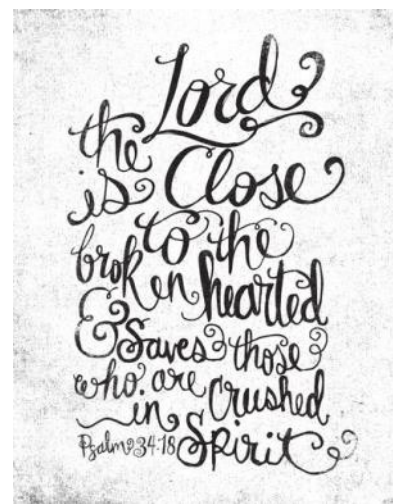 the Lord
is Close
to the
broken hearted
& Saves those
who are Crushed
in Spirit
Psalm 34:18